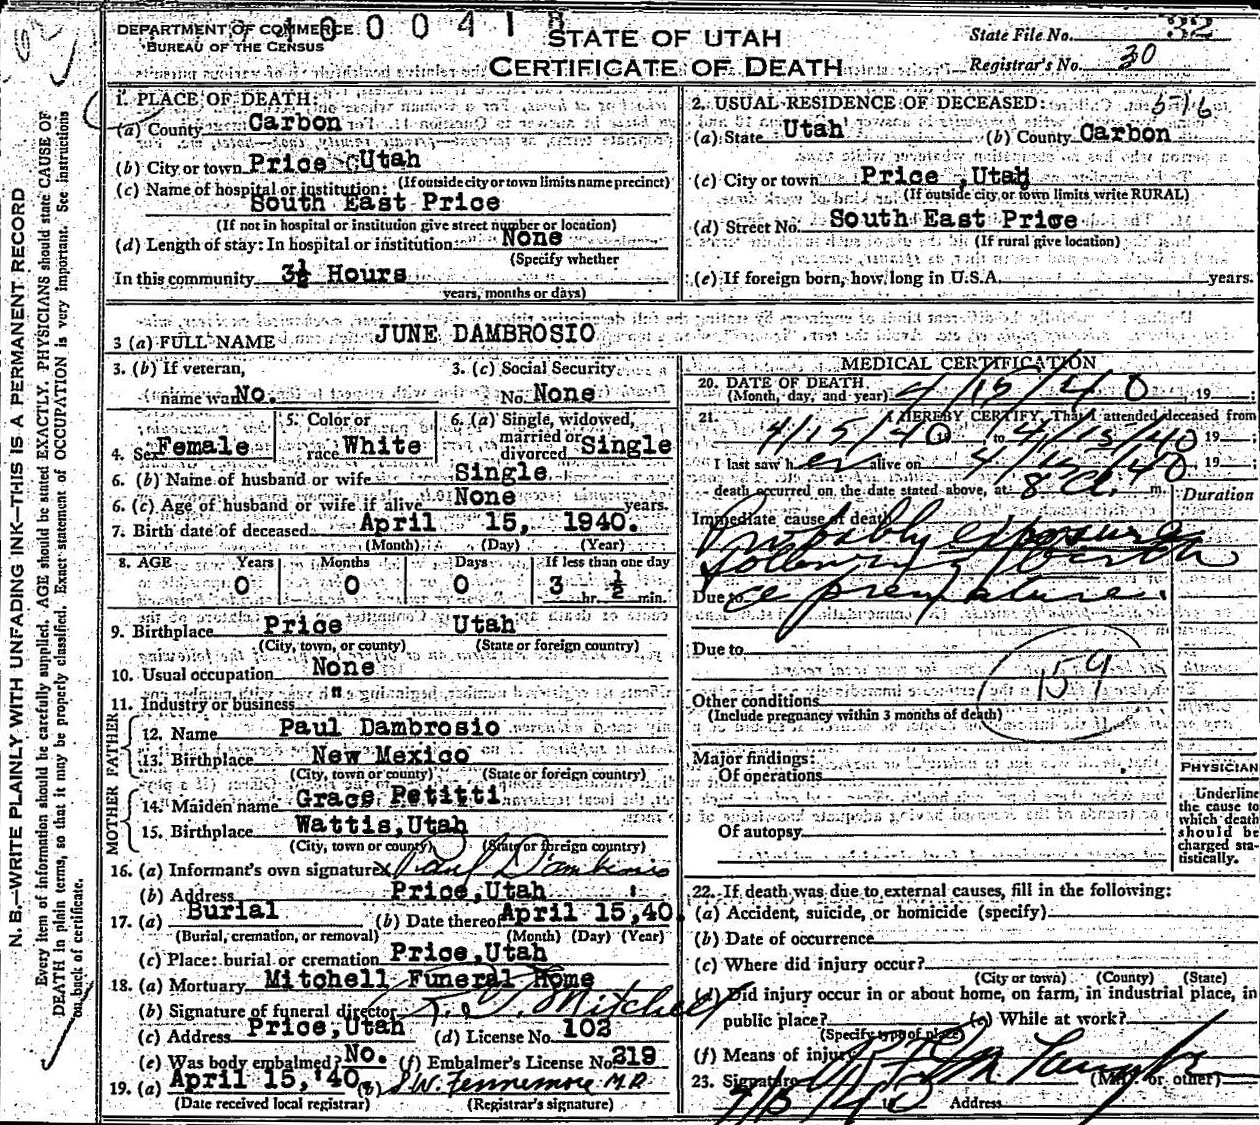 DEPARTMENT OF COMMERCE
BUREAU OF THE CENSUS
000418
STATE OF UTAH
CERTIFICATE OF DEATH
State File No. 32
Registrar's No. 30
N. B.—WRITE PLAINLY WITH UNFADING INK—THIS IS A PERMANENT RECORD
Every item of information should be carefully supplied. AGE should be stated EXACTLY. PHYSICIANS should state CAUSE OF
DEATH in plain terms, so that it may be properly classified. Exact statement of OCCUPATION is very important. See instructions
on back of certificate.
1. PLACE OF DEATH:
(a) County Carbon
(b) City or town Price Utah
(If outside city or town limits name precinct)
(c) Name of hospital or institution:
South East Price
(If not in hospital or institution give street number or location)
(d) Length of stay: In hospital or institution None
(Specify whether
In this community 3½ Hours
years, months or days)
2. USUAL RESIDENCE OF DECEASED:
(a) State Utah (b) County Carbon
(c) City or town Price ,Utah
(If outside city or town limits write RURAL)
(d) Street No. South East Price
(If rural give location)
(e) If foreign born, how long in U.S.A. years.
3 (a) FULL NAME JUNE DAMBROSIO
3. (b) If veteran,
name war No.
3. (c) Social Security
No. None
4. Sex Female
5. Color or
race White
6. (a) Single, widowed,
married or
divorced Single
6. (b) Name of husband or wife Single
6. (c) Age of husband or wife if alive None years.
7. Birth date of deceased April 15, 1940.
(Month) (Day) (Year)
8. AGE Years Months Days If less than one day
0 0 0 3 hr. ½ min.
9. Birthplace Price Utah
(City, town, or county) (State or foreign country)
10. Usual occupation None
11. Industry or business "
FATHER
12. Name Paul Dambrosio
13. Birthplace New Mexico
(City, town or county) (State or foreign country)
MOTHER
14. Maiden name Grace Petitti
15. Birthplace Wattis,Utah
(City, town or county) (State or foreign country)
16. (a) Informant's own signature x Paul Dambrosio
(b) Address Price,Utah
17. (a) Burial (b) Date thereof April 15,40.
(Burial, cremation, or removal) (Month) (Day) (Year)
(c) Place: burial or cremation Price,Utah
18. (a) Mortuary Mitchell Funeral Home
(b) Signature of funeral director Mitchell
(c) Address Price,Utah (d) License No. 102
(e) Was body embalmed? No. (f) Embalmer's License No. 219
19. (a) April 15,'40 (b) J.W. Fennemore M.D
(Date received local registrar) (Registrar's signature)
MEDICAL CERTIFICATION
20. DATE OF DEATH
(Month, day, and year) 4/15/40, 19
21. I HEREBY CERTIFY, That I attended deceased from
4/15/40 19 to 4/15/40 19
I last saw her alive on 4/15/40, 19
death occurred on the date stated above, at 8 a. m.
Duration
Immediate cause of death
Probably exposure
following birth
Due to premature.
Due to
159
Other conditions
(Include pregnancy within 3 months of death)
Major findings:
Of operations
Of autopsy
PHYSICIAN
Underline
the cause to
which death
should be
charged sta-
tistically.
22. If death was due to external causes, fill in the following:
(a) Accident, suicide, or homicide (specify)
(b) Date of occurrence
(c) Where did injury occur?
(City or town) (County) (State)
(d) Did injury occur in or about home, on farm, in industrial place, in
public place? (e) While at work?
(Specify type of place)
(f) Means of injury
23. Signature (M.D. or other)
4/15/40 19 Address